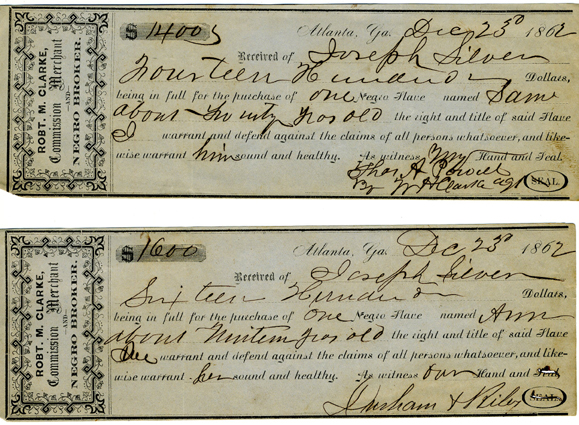 ROBT. M. CLARKE,
Commission Merchant
—AND—
NEGRO BROKER.
$ 1400
Atlanta, Ga. Dec 23d 1862
Received of Joseph Silver
Fourteen Hundred Dollars,
being in full for the purchase of one Negro Slave named Sam
about Twenty yrs old the right and title of said Slave
I warrant and defend against the claims of all persons whatsoever, and like-
wise warrant him sound and healthy. As witness my Hand and Seal.
Thos. A. Powell
By
SEAL
ROBT. M. CLARKE,
Commission Merchant
—AND—
NEGRO BROKER.
$ 1600
Atlanta, Ga. Dec 23d 1862
Received of Joseph Silver
Sixteen Hundred Dollars,
being in full for the purchase of one Negro Slave named Ann
about Ninteen yrs old the right and title of said Slave
We warrant and defend against the claims of all persons whatsoever, and like-
wise warrant her sound and healthy. As witness our Hand and Seal.
& Riley
SEAL